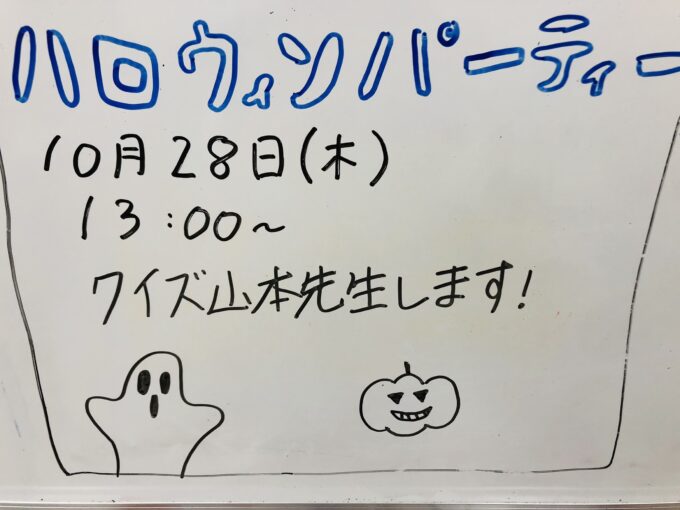 ハロウィンパーティー
10月28日(木)
13:00~
ワイズ山本先生します!